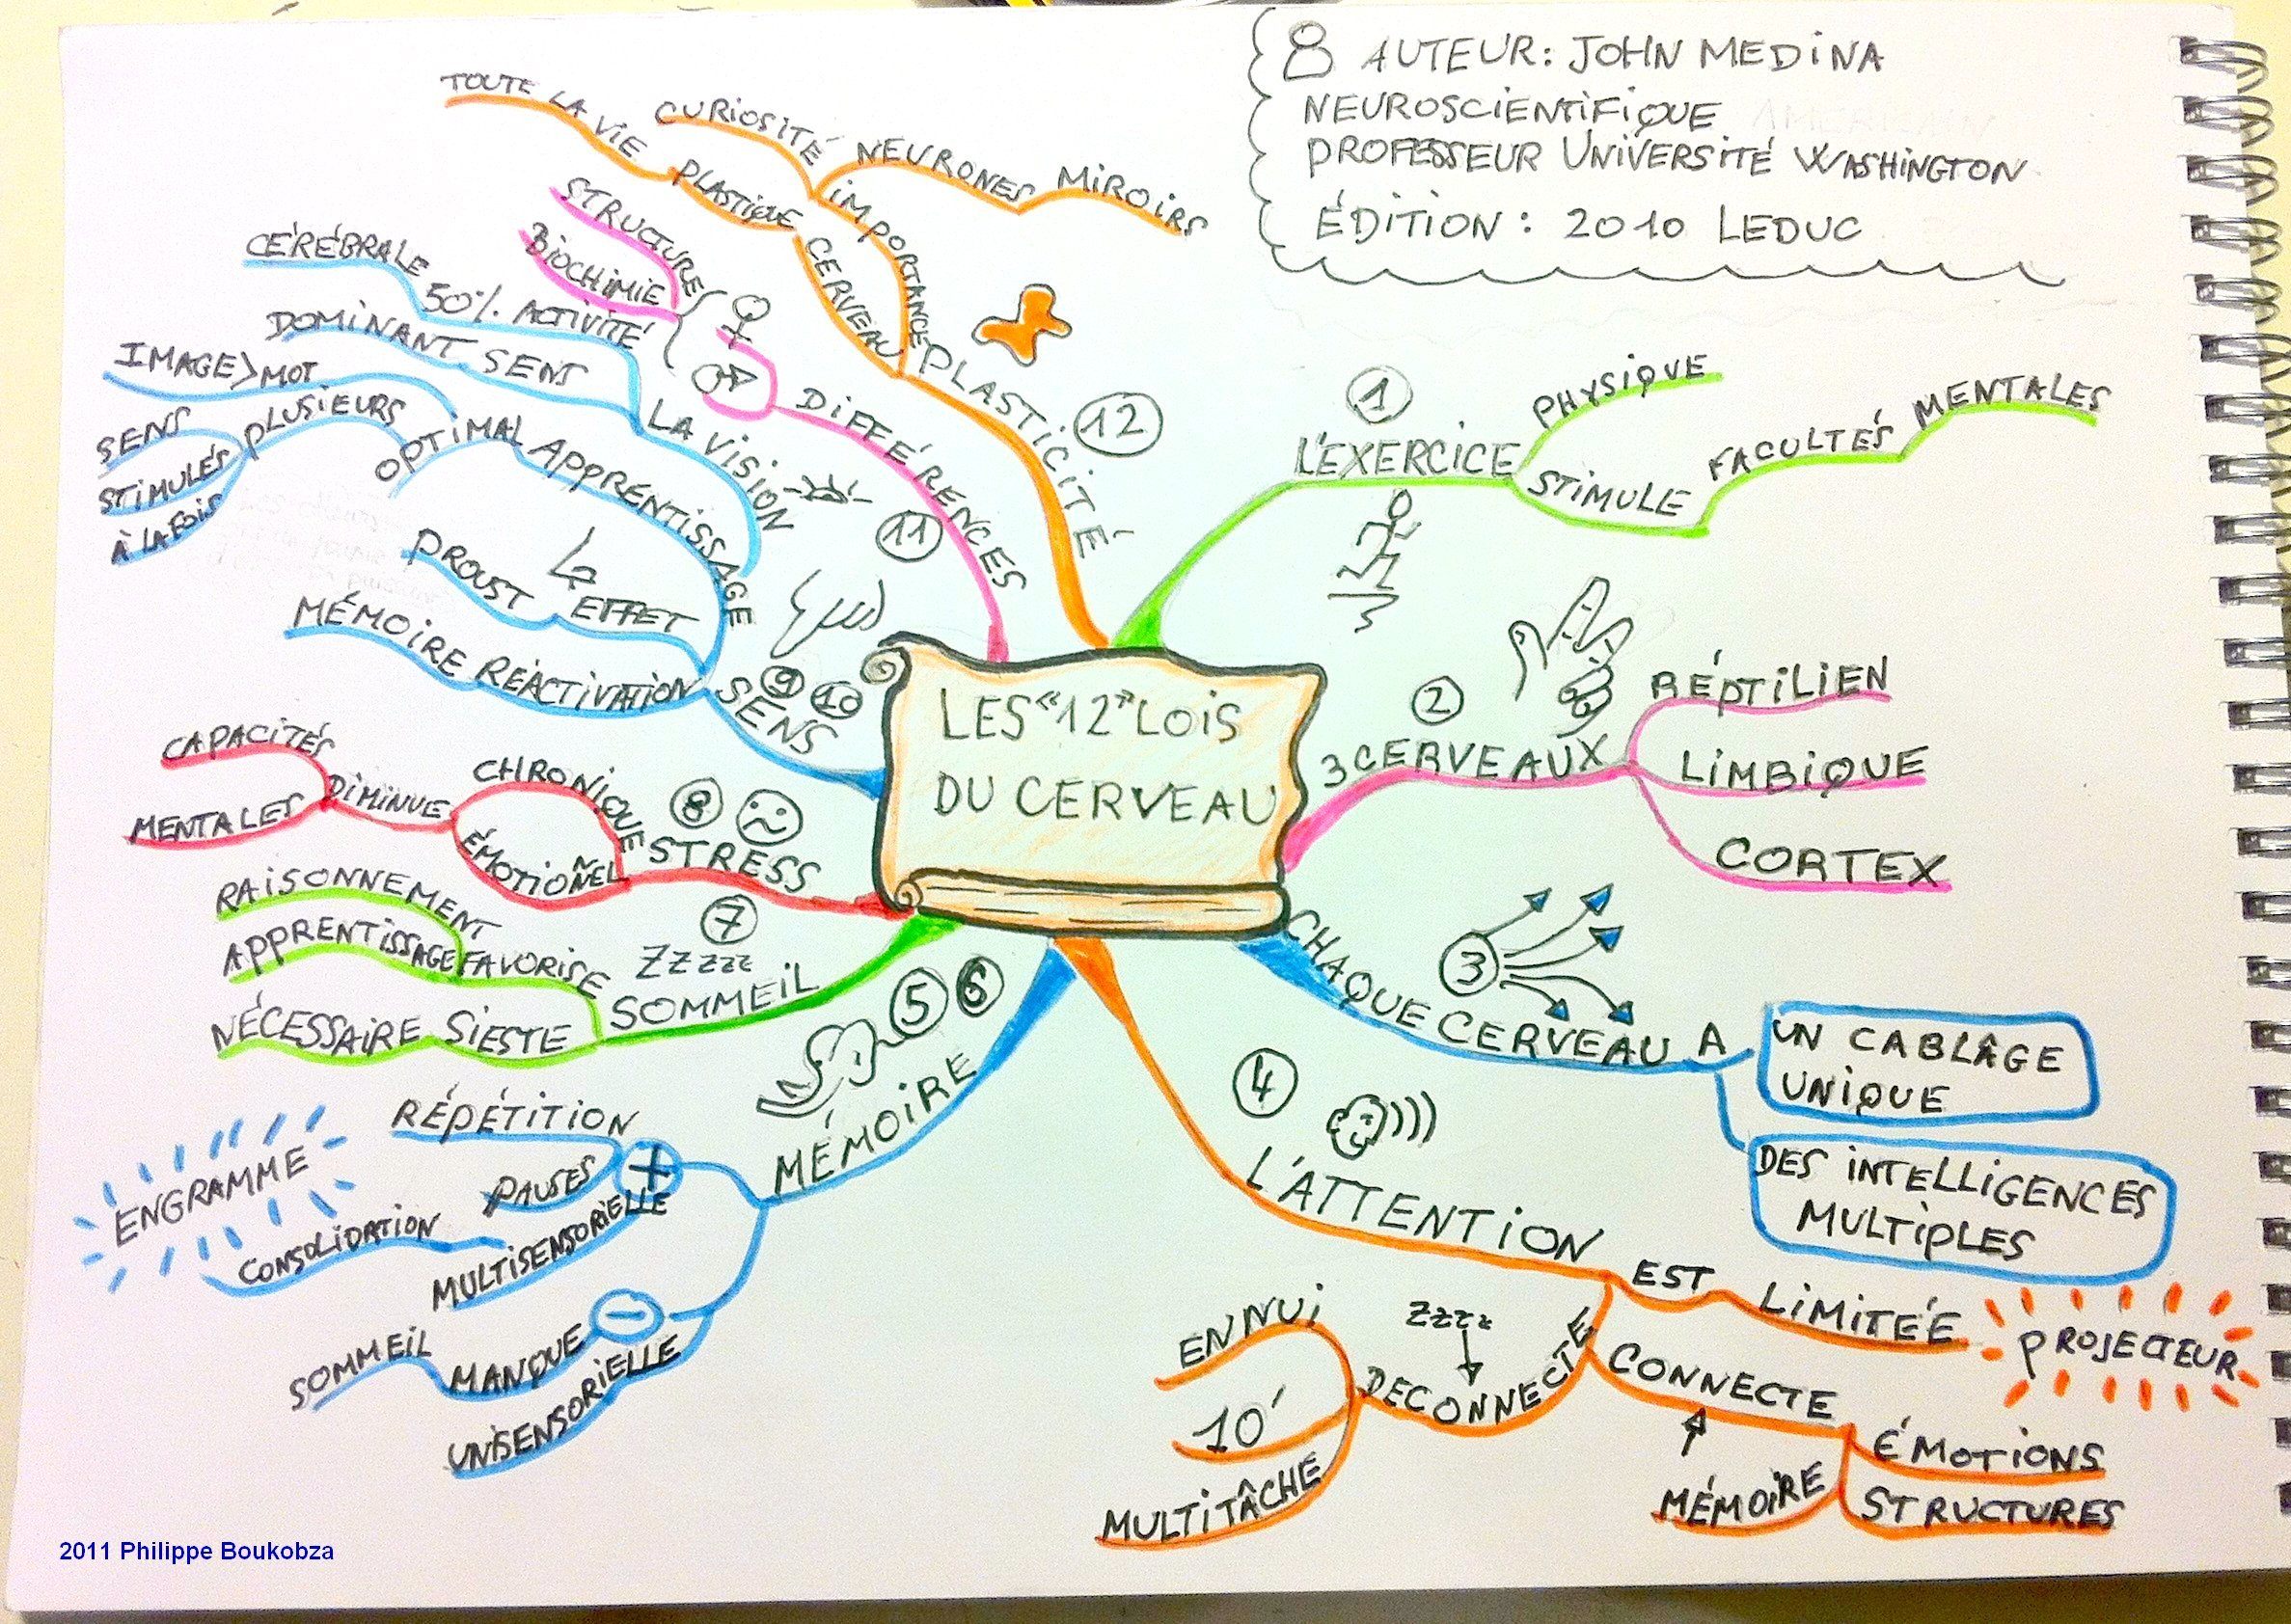 AUTEUR: JOHN MEDINA
NEUROSCIENTIFIQUE
PROFESSEUR UNIVERSITÉ WASHINGTON
ÉDITION : 2010 LEDUC
LES "12" LOIS
DU CERVEAU
1
L'EXERCICE
PHYSIQUE
STIMULE
FACULTÉS MENTALES
2
3 CERVEAUX
RÉPTILIEN
LIMBIQUE
CORTEX
3
CHAQUE CERVEAU A
UN CABLÂGE
UNIQUE
DES INTELLIGENCES
MULTIPLES
4
L'ATTENTION
EST LIMITÉE
PROJECTEUR
CONNECTE
ÉMOTIONS
STRUCTURES
MÉMOIRE
DECONNECTE
ZZZZ
ENNUI
10'
MULTITÂCHE
5 6
MÉMOIRE
+
RÉPÉTITION
PAUSES
MULTISENSORIELLE
CONSOLIDATION
ENGRAMME
-
MANQUE
SOMMEIL
UNISENSORIELLE
7
ZZzzz
SOMMEIL
FAVORISE
RAISONNEMENT
APPRENTISSAGE
SIESTE
NÉCESSAIRE
8
STRESS
CHRONIQUE
ÉMOTIOÑEL
DIMINUE
CAPACITÉS
MENTALES
9 10
SENS
MÉMOIRE RÉACTIVATION
EFFET
PROUST
APPRENTISSAGE
OPTIMAL
PLUSIEURS
SENS
STIMULÉS
À LA FOIS
IMAGE>MOT
LA VISION
DOMINANT SENS
50% ACTIVITÉ
CÉRÉBRALE
11
DIFFÉRENCES
♀
♂
STRUCTURE
BIOCHIMIE
12
PLASTICITÉ
CERVEAU
PLASTIQUE
TOUTE LA VIE
IMPORTANCE
CURIOSITÉ
NEURONES MIROIRS
2011 Philippe Boukobza